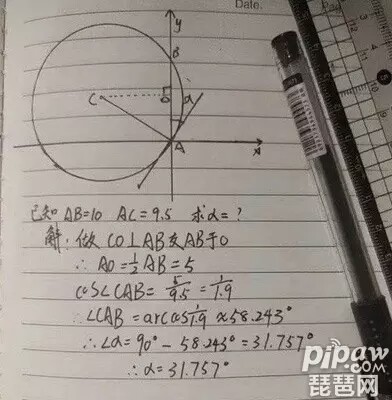 Date.
y
B
C
O
α
A
x
已知 AB=10 AC=9.5 求α=?
解:做 CO⊥AB交AB于O
∴ AO=1/2 AB=5
cos∠CAB= 5/9.5 = 1/1.9
∴∠CAB=arccos 1/1.9 ≈58.243°
∴∠α=90°-58.243°=31.757°
∴α=31.757°
pipaw.com
琵琶网